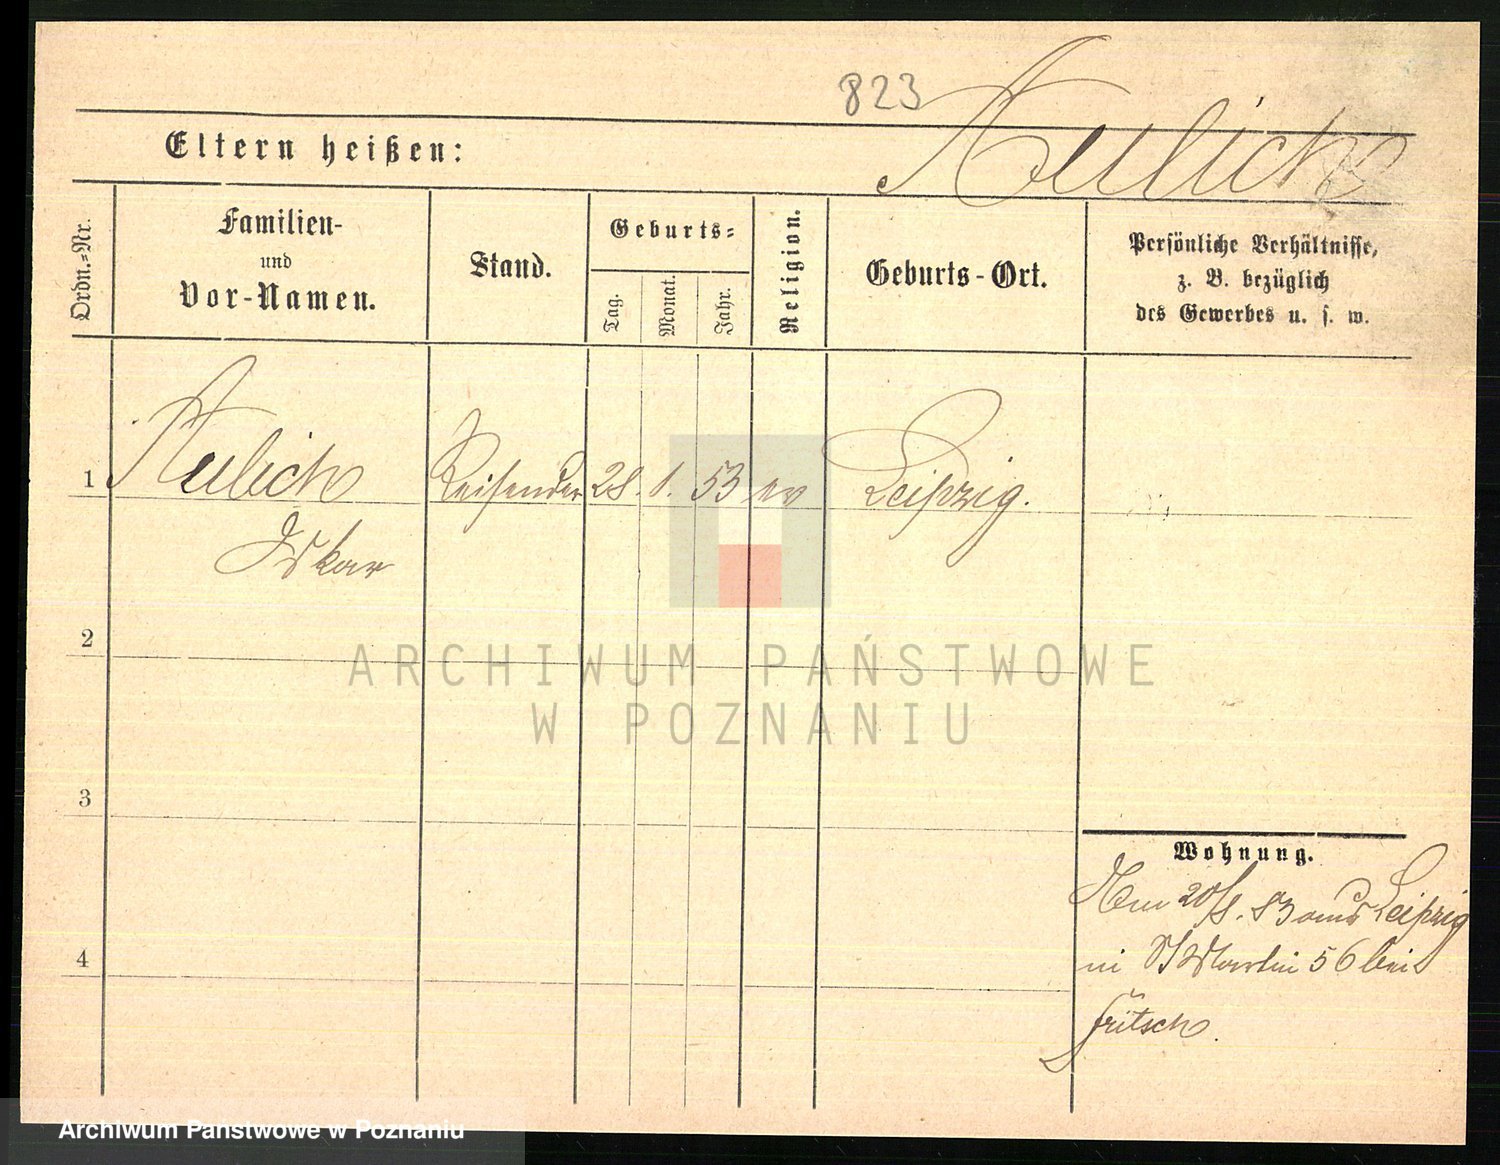 823 Aulich
Eltern heißen:
Ordn.=Nr.
Familien-
und
Vor-Namen.
Stand.
Geburts=
Tag.
Monat.
Jahr.
Religion.
Geburts-Ort.
Persönliche Verhältnisse,
z. B. bezüglich
des Gewerbes u. s. w.
1 Aulich Reisender 28. 1. 53 ev Leipzig.
Oskar
2
3
4
Wohnung.
20/8. 83 aus Leipzig
in St Martin 56 bei
Fritsch.
ARCHIWUM PAŃSTWOWE
W POZNANIU
Archiwum Państwowe w Poznaniu